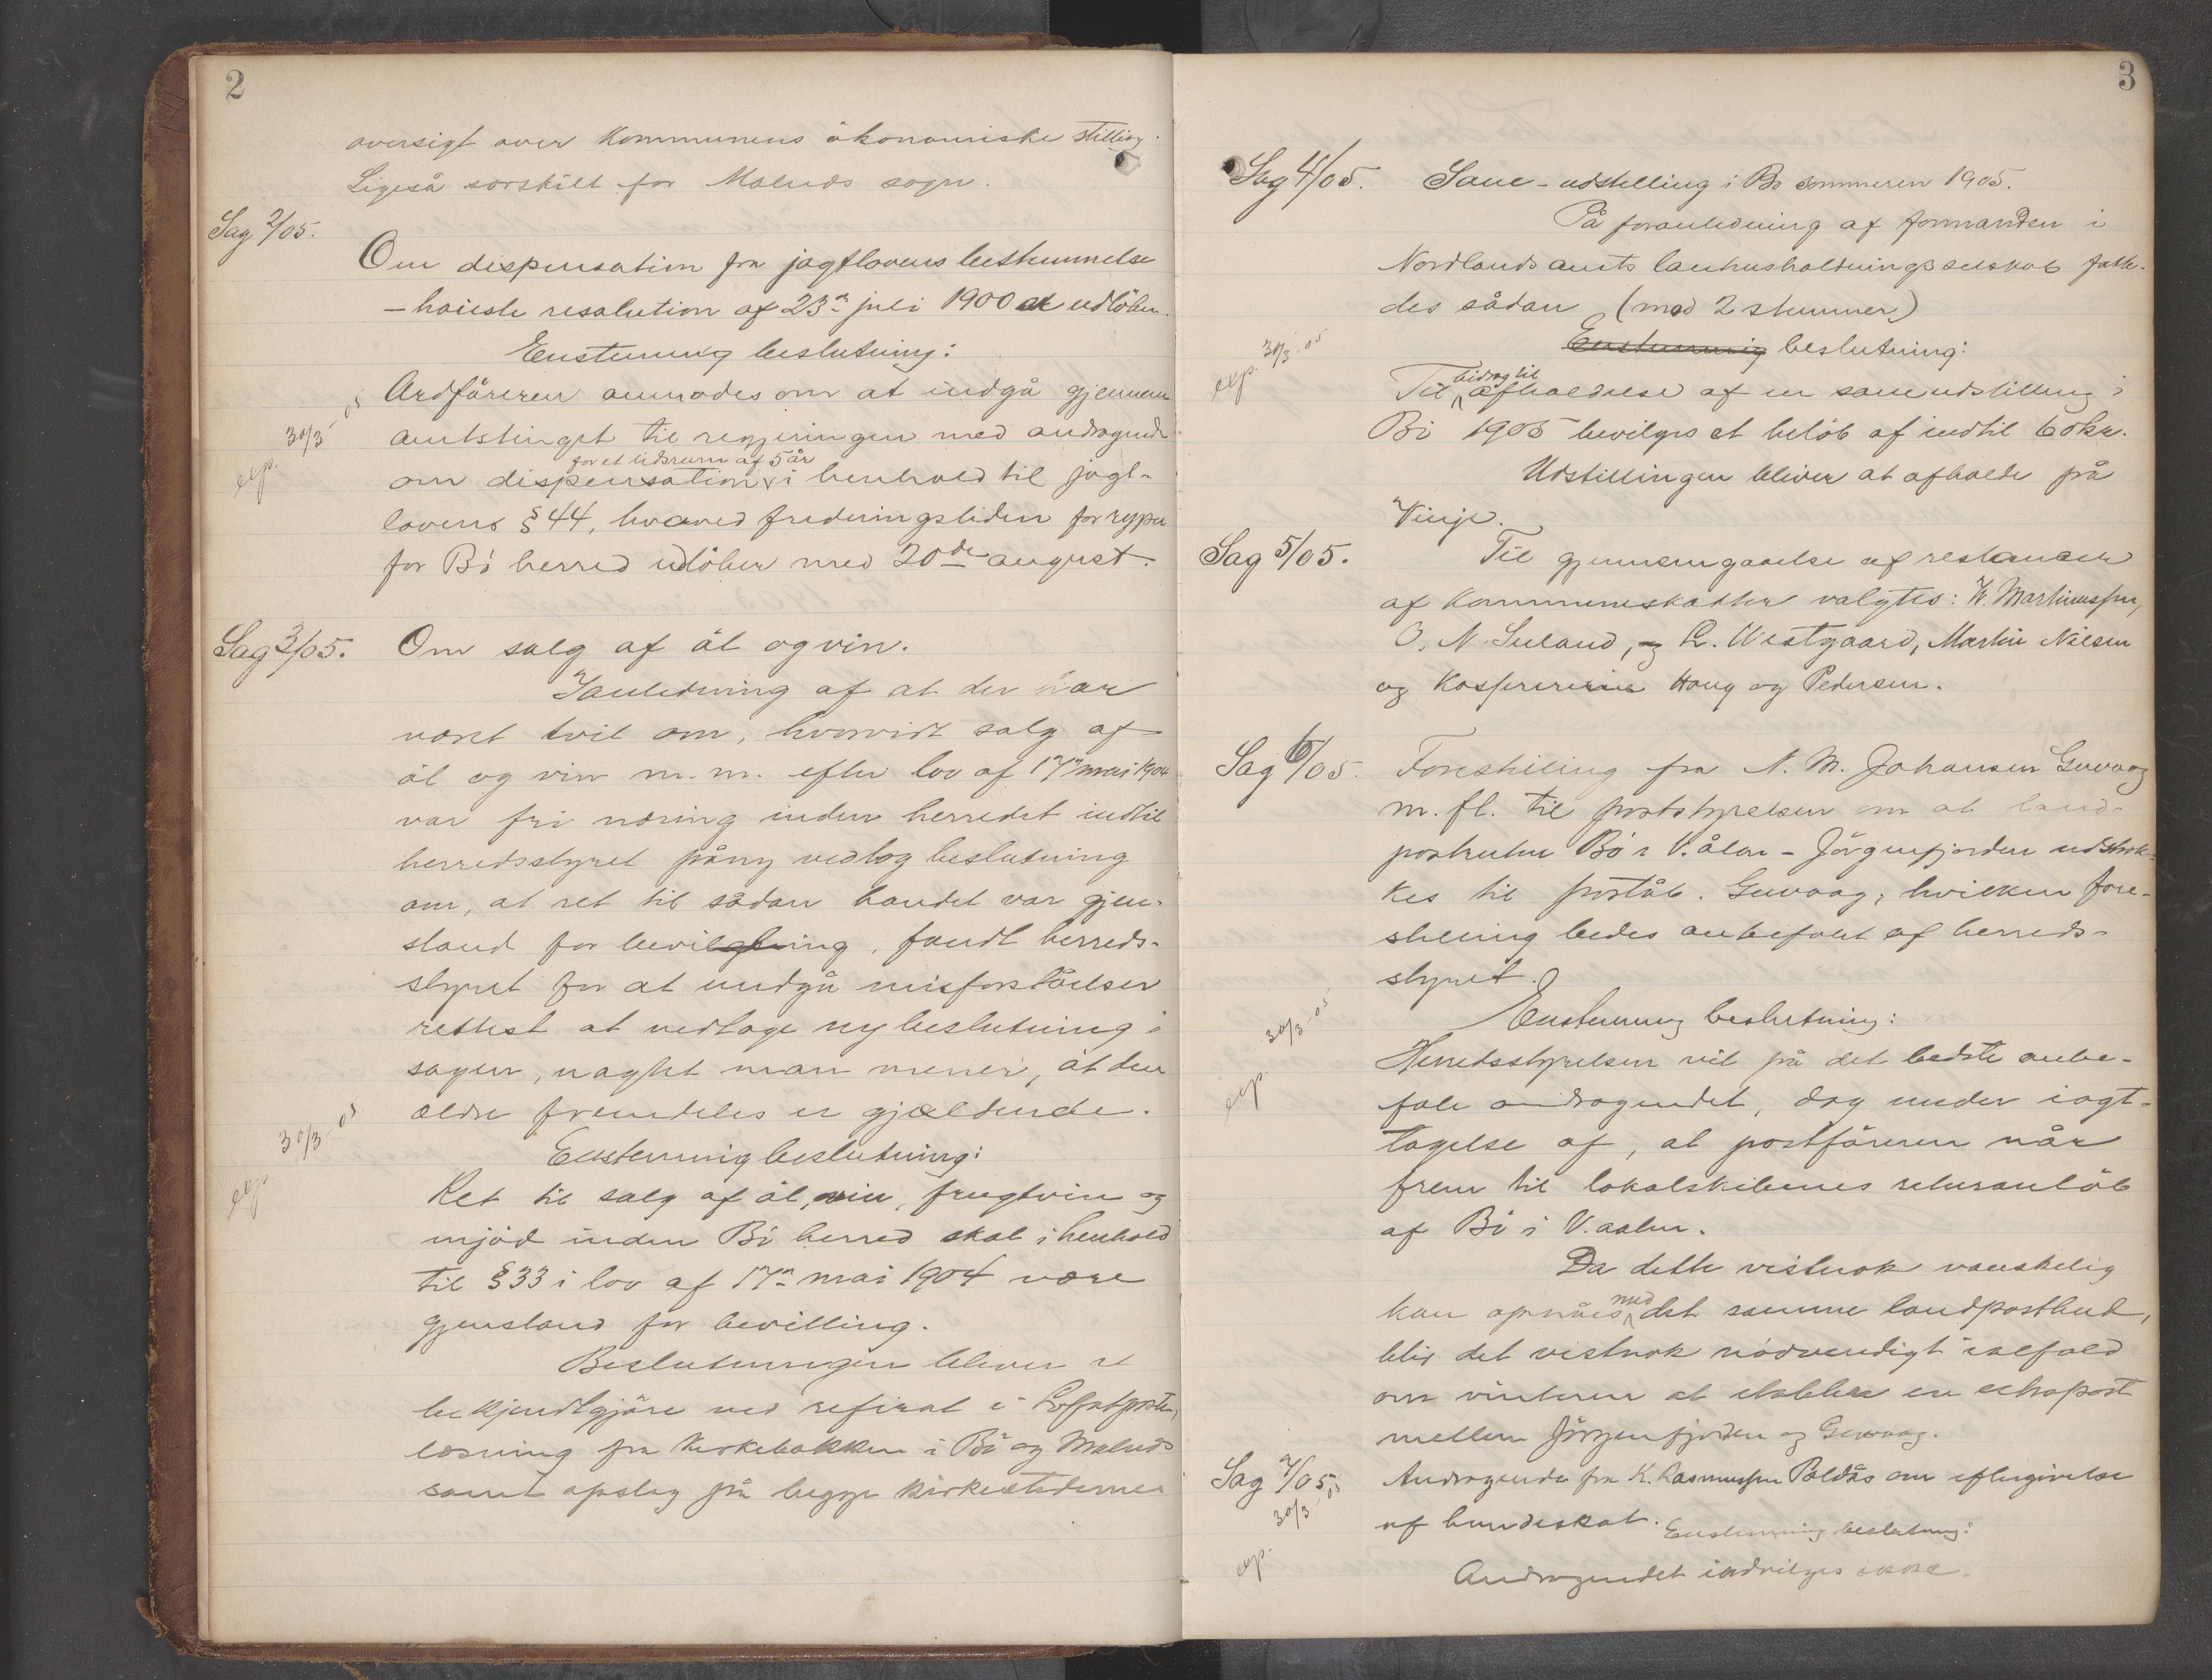 2
oversigt over kommunens økonomiske stilling.
Ligeså særskilt for Malnes sogn.
Sag 2/05.
Om dispensation fra jagtlovens bestemmelse
- høieste resolution af 23de juli 1900 er udløben.
Enstemmig beslutning:
Ordføreren anmodes om at indgå gjennem
amtstinget til regjeringen med andragende
for et tidsrum af 5 år
om dispensation i henhold til jagt-
lovens § 44, hvorved fredningstiden for ryper
for Bø herred udløber med 20de august.
exp. 30/3-05
Sag 3/05.
Om salg af øl og vin.
I anledning af at der har
været tvil om, hvorvidt salg af
øl og vin m.m. efter lov af 17de mai 1904
var fri næring inden herredet indtil
herredsstyret påny vedtog beslutning
om, at ret til sådan handel var gjen-
stand for bevilgning, fandt herreds-
styret for at undgå misforståelser
rettest at vedtage ny beslutning i
sagen, uagtet man mener, at den
ældre fremdeles er gjældende.
exp. 30/3-05
Enstemmig beslutning:
Ret til salg af øl, vin, frugtvin og
mjød inden Bø herred skal i henhold
til § 33 i lov af 17de mai 1904 være
gjenstand for bevilling.
Beslutningen bliver at
bekjendtgjøre ved referat i Lofotposten,
læsning fra kirkebakken i Bø og Malnes
samt opslag på begge kirkestederne
3
Sag 4/05.
Saue-udstilling i Bø sommeren 1905.
På foranledning af formanden i
Nordlands amts landhusholdningsselskab fatte-
des sådan (mod 2 stemmer)
Enstemmig beslutning:
exp. 30/3-05
bidrag til
Til afholdelse af en saueudstilling i
Bø 1905 bevilges et beløb af indtil 60 kr.
Udstillingen bliver at afholde på
Vinje.
Sag 5/05.
Til gjennemgaaelse af restancer
af kommuneskatter valgtes: W. Martinussen,
O. N. Suland, og L. Westgaard, Martin Nilsen
og kassererne Haug og Pedersen.
Sag 6/05.
Forestilling fra N. M. Johansen Guvaag
m. fl. til poststyrelsen om at land-
postruten Bø i V.ålen - Jørgenfjorden udstræk-
kes til poståb. Guvaag; hvilken fore-
stilling bedes anbefalet af herreds-
styret.
Enstemmig beslutning:
exp. 30/3-05
Herredsstyrelsen vil på det bedste anbe-
fale andragendet, dog under iagt-
tagelse af, at postføreren når
frem til lokalskibenes returanløb
af Bø i V.aalen.
Da dette vistnok vanskelig
med
kan opnåes det samme landpostbud,
blir det vistnok nødvendigt ialfald
om vinteren at etablere en extrapost
mellem Jørgenfjorden og Guvaag.
Sag 7/05
Andragende fra K. Rasmussen Poldås om eftergivelse
af hundeskat. Enstemmig beslutning:
exp. 30/3-05
Andragendet indvilges ikke.